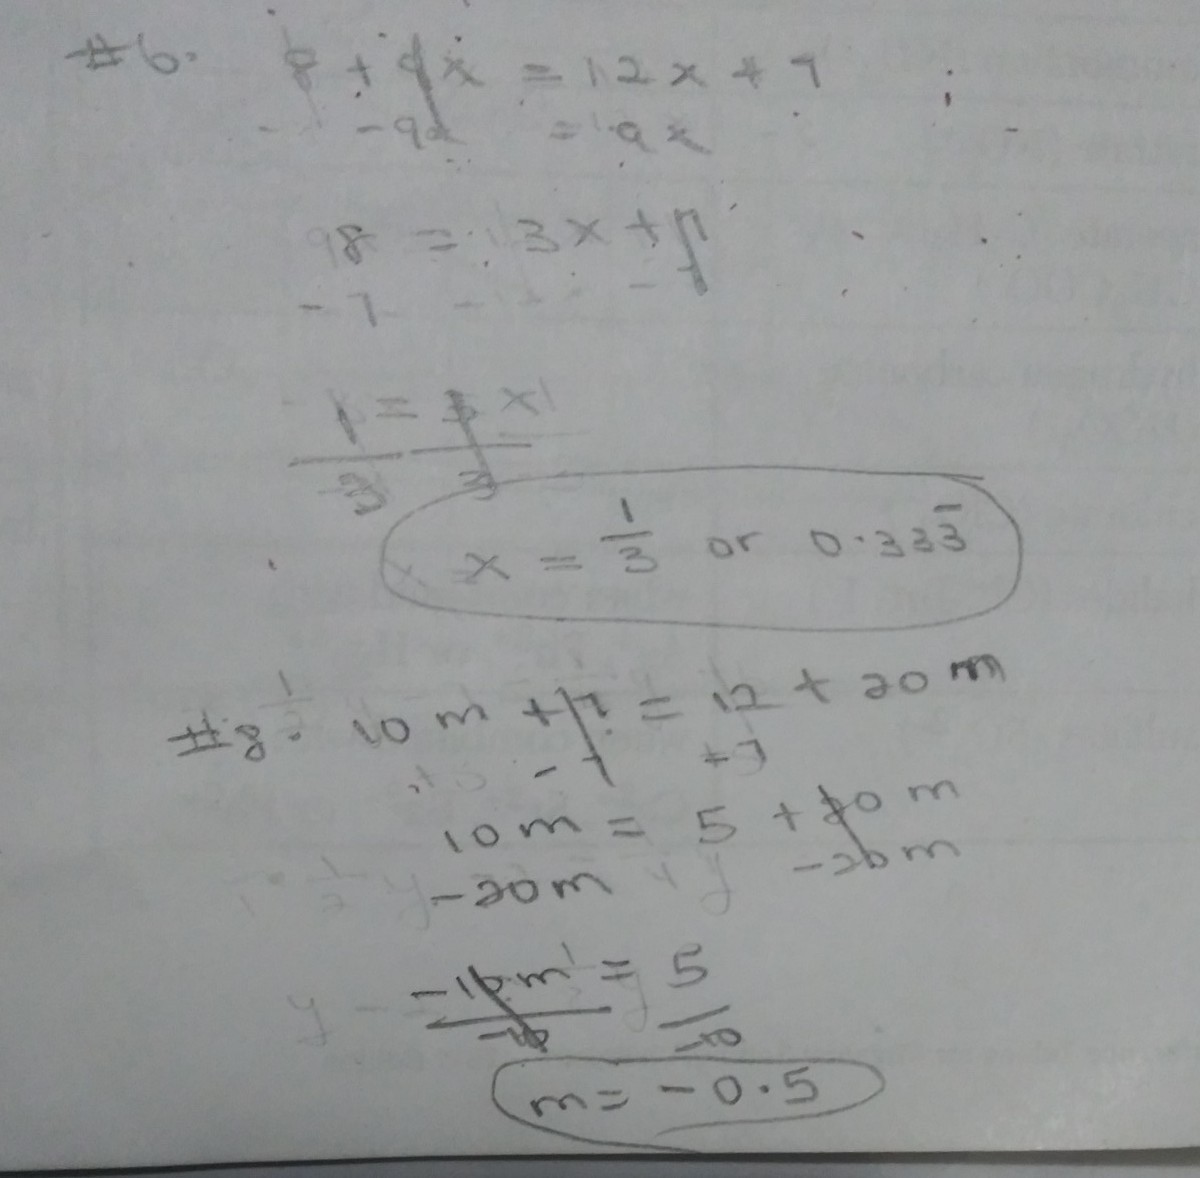 #6. 8 + 9x = 12x + 7
-9x = 9x
8 = 3x + 7
-7 -7
1 = 3x
3 3
x = 1/3 or 0.333̅
#8. 10m + 7 = 12 + 20m
-7 +7
10m = 5 + 20m
-20m -20m
-10m = 5
-10 -10
m = -0.5